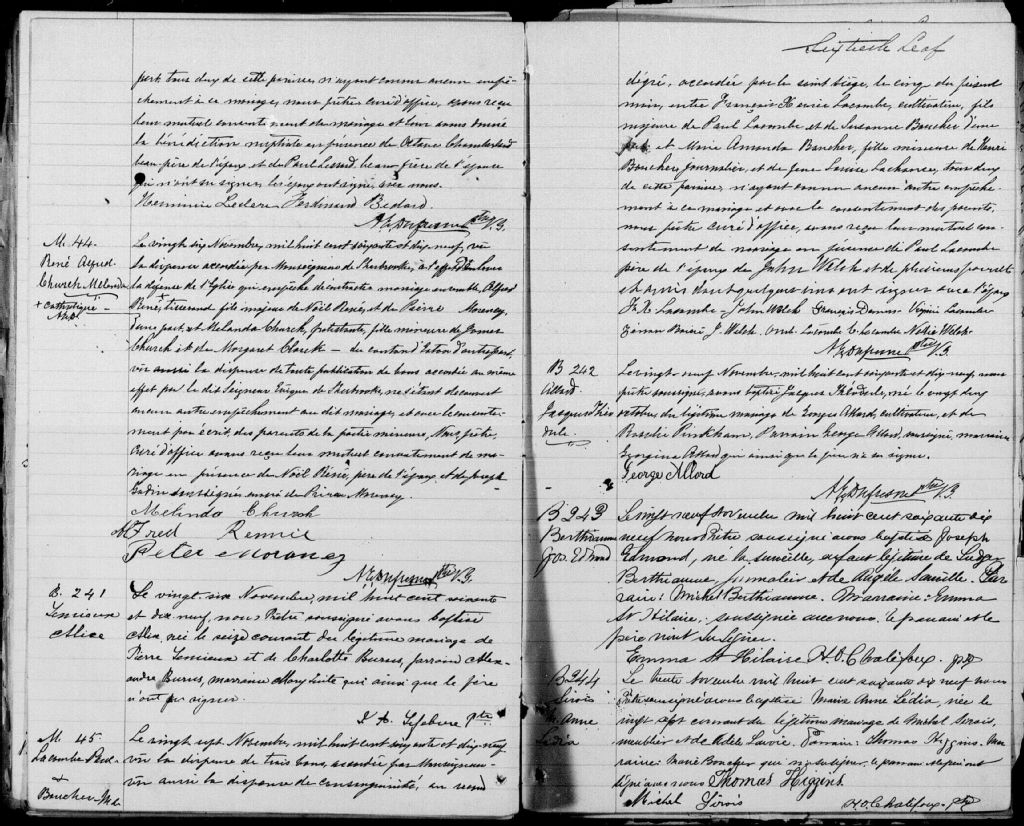 part, tous deux de cette paroisse, n'ayant connu aucun empê-
chement à ce mariage, nous prêtre curé d'office, avons reçu
leur mutuel consentement de mariage et leur avons donné
la bénédiction nuptiale en présence de Octave Chamberland
beau-père de l'époux et de Paul Lessard, beau-frère de l'épouse
qui n'ont su signer, les époux ont signé avec nous.
Herminie Leclerc Ferdinand Bedard.
A.E. Dufresne Ptre V.G.
M. 44.
René Alfred
Church Melinda
+ catholique
Le vingt six Novembre, mil huit cent soixante et dix-neuf, vu
la dispense accordée par Monseigneur de Sherbrooke, à l'effet de
la défense de l'Église qui empêche de contracter mariage ensemble, Alfred
René, tisserand, fils majeur de Noël René, et de Pierre Moreney,
d'une part, et Melanda Church, protestante, fille mineure de James
Church et de Margaret Clark - du canton d'Eaton d'autre part,
vu aussi la dispense de toute publication de bans accordée au même
effet par le dit Seigneur Évêque de Sherbrooke, ne s'étant découvert
aucun autre empêchement au dit mariage, et avec le consente-
ment par écrit, des parents de la partie mineure, Nous, prêtre,
curé d'office avons reçu leur mutuel consentement de ma-
riage en présence de Noël René, père de l'époux et de Joseph
soussigné de Pierre Moreney.
Melinda Church
Alfred Rennie
Peter Moroney
A.E. Dufresne Ptre V.G.
B. 241
Lemieux
Alice
Le vingt six Novembre, mil huit cent soixante
et dix neuf, nous Prêtre soussigné avons baptisé
Alice, née le seize courant du légitime mariage de
Pierre Lemieux et de Charlotte Burns, parrain Alex-
andre Burns, marraine Marguerite qui ainsi que le père
n'ont pu signer.
Lefebvre Ptre
M. 45.
Lacombe Frs.
&
Boucher M. A.
Le vingt sept Novembre, mil huit cent soixante et dix-neuf
vu la dispense de trois bans, accordée par Monseigneur
vu aussi la dispense de consanguinité, au second
Sixtieth Leaf
degré, accordée par le saint siège, le cinq du présent
mois, entre François-Xavier Lacombe, cultivateur, fils
majeur de Paul Lacombe et de Suzanne Boucher d'une
part et Marie Amanda Boucher, fille mineure de Henri
Boucher, journalier, et de feue Louise Lachance, tous deux
de cette paroisse, n'ayant connu aucun autre empêche-
ment à ce mariage et avec le consentement des parents,
nous prêtre curé d'office, avons reçu leur mutuel con-
sentement de mariage en présence de Paul Lacombe
père de l'époux, de John Welch et de plusieurs parents
et amis dont quelques-uns ont signé avec l'époux
F. X. Lacombe John Welch François Dumas Virginie Lacombe
J. Welch Lacombe E. Lacombe Welch.
A.E. Dufresne Ptre V.G.
B 242
Allard.
Jacques Théo-
dule.
Le vingt-neuf Novembre, mil huit cent soixante et dix-neuf, nous
prêtre soussigné, avons baptisé Jacques Théodule, né le vingt deux
octobre, du légitime mariage de Georges Allard, cultivateur, et de
Rosalie Pinkham, Parrain George Allard, soussigné, marraine
Georgina Allard qui ainsi que le père n'a su signer.
George Allard
A.E. Dufresne Ptre V.G.
B 243
Berthiaume
Jos. Edmond
Le vingt neuf Novembre mil huit cent soixante dix
neuf nous Prêtre soussigné avons baptisé Joseph
Edmond, né la surveille, enfant légitime de Ludger
Berthiaume, journalier et de Angèle Lavallée. Par-
rain: Michel Berthiaume. Marraine: Emma
St Hilaire, soussignée avec nous. Le parrain et le
père n'ont su signer.
Emma St Hilaire H.O. Chalifoux. ptr
B 244
Sirois
M. Anne
Lédia
Le trente Novembre mil huit cent soixante dix neuf nous
Prêtre soussigné avons baptisé Marie Anne Lédia, née le
vingt sept courant du légitime mariage de Michel Sirois,
meublier et de Adèle Lavoie. Parrain: Thomas Higgins. Mar-
raine: Marie Boucher qui n'a su signer, le parrain et le père ont
signé avec nous Thomas Higgins.
Michel Sirois H.O. Chalifoux. Ptr